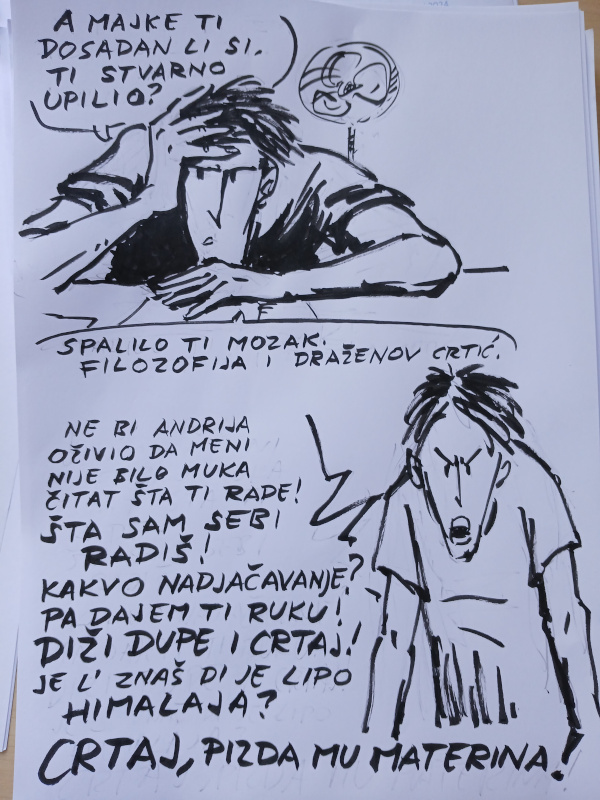 A MAJKE TI
DOSADAN LI SI.
TI STVARNO
UPILIO?
SPALILO TI MOZAK.
FILOZOFIJA I DRAŽENOV CRTIĆ.
NE BI ANDRIJA
OŽIVIO DA MENI
NIJE BILO MUKA
ČITAT ŠTA TI RADE!
ŠTA SAM SEBI
RADIŠ!
KAKVO NADJAČAVANJE?
PA DAJEM TI RUKU!
DIŽI DUPE I CRTAJ!
JE L' ZNAŠ DI JE LIPO
HIMALAJA?
CRTAJ, PIZDA MU MATERINA!